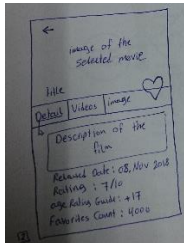 image of the
selected movie
title
Detail Videos image
Description of the
film
Released Date : 08, Nov 2018
Ratings : 7/10
age Rating Guide : +17
Favorites Count : 4000